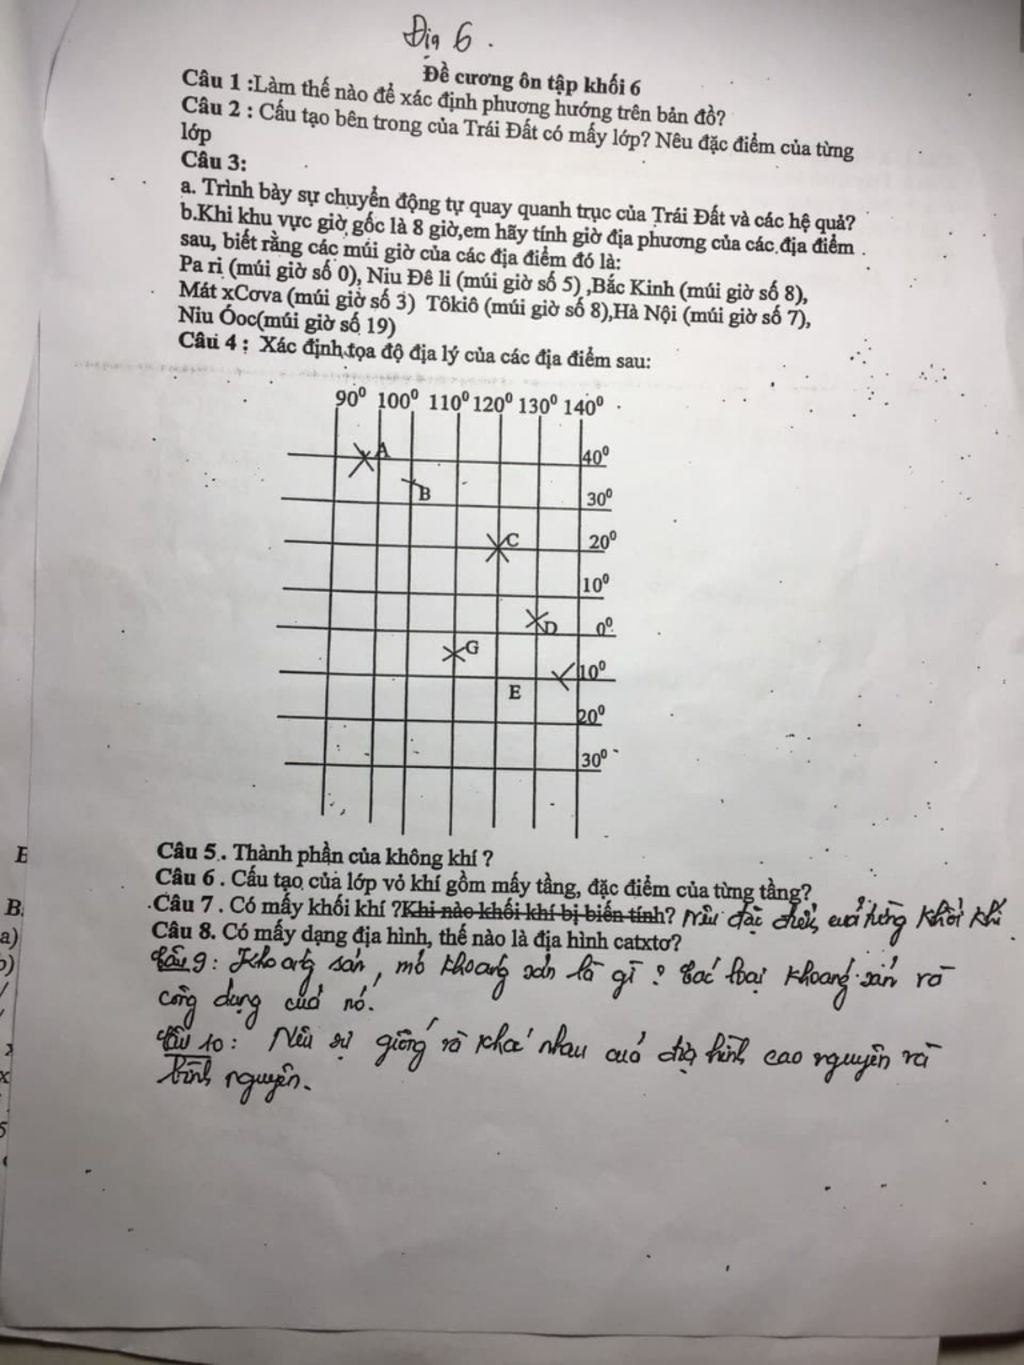 Địa 6.
Đề cương ôn tập khối 6
Câu 1 :Làm thế nào để xác định phương hướng trên bản đồ?
Câu 2 : Cấu tạo bên trong của Trái Đất có mấy lớp? Nêu đặc điểm của từng
lớp
Câu 3:
a. Trình bày sự chuyển động tự quay quanh trục của Trái Đất và các hệ quả?
b.Khi khu vực giờ gốc là 8 giờ,em hãy tính giờ địa phương của các địa điểm
sau, biết rằng các múi giờ của các địa điểm đó là:
Pa ri (múi giờ số 0), Niu Đê li (múi giờ số 5) ,Bắc Kinh (múi giờ số 8),
Mát xCơva (múi giờ số 3) Tôkiô (múi giờ số 8),Hà Nội (múi giờ số 7),
Niu Óoc(múi giờ số 19)
Câu 4 : Xác định tọa độ địa lý của các địa điểm sau:
90⁰ 100⁰ 110⁰ 120⁰ 130⁰ 140⁰
A 40⁰
B 30⁰
C 20⁰
10⁰
D 0⁰
G
10⁰
E
20⁰
30⁰
Câu 5. Thành phần của không khí ?
Câu 6 . Cấu tạo của lớp vỏ khí gồm mấy tầng, đặc điểm của từng tầng?
Câu 7 . Có mấy khối khí ?Khi nào khối khí bị biến tính? Nêu đặc điểm của từng khối khí
Câu 8. Có mấy dạng địa hình, thế nào là địa hình catxtơ?
Câu 9: Khoáng sản, mỏ khoáng sản là gì? Các loại khoáng sản và
công dụng của nó.
Câu 10: Nêu sự giống và khác nhau của địa hình cao nguyên và
bình nguyên.
E
B
a)